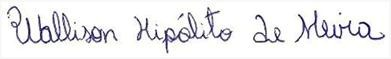 Wallison Hipólito de Meira